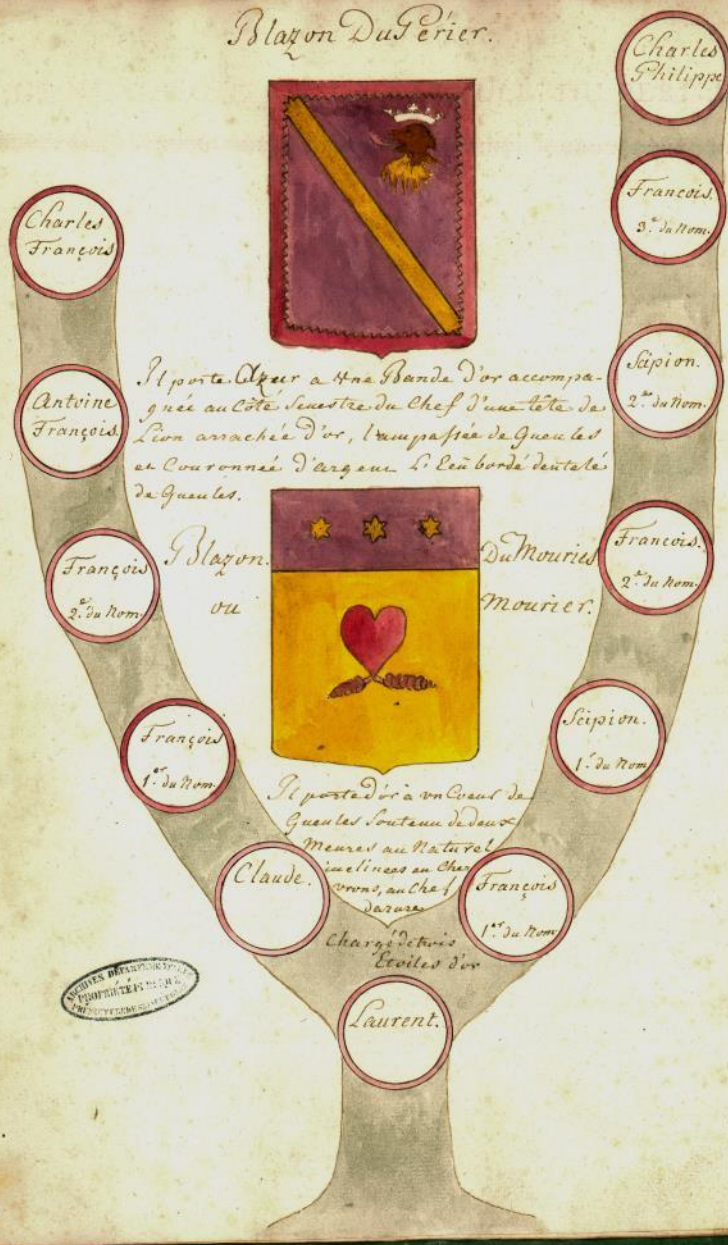 Blazon Du Périer.
Charles
Philippe
François.
3.e du Nom.
Charles
François
Scipion.
2.e du Nom.
Il porte Azeur a Une Bande d'or accompa-
gnée au Côté Senestre du Chef d'une tête de
Lion arrachée d'or, Lampassée de Gueules
et Couronnée d'argent L'Ecü bordé dentelé
de Gueules.
Antoine
François.
Blazon.
ou
Du Mouriés
Mourier.
François.
2.e du Nom.
François
2.e du Nom.
Scipion.
1.r du Nom
François
1.er du Nom.
Il porte d'or à un Coeur de
Gueules Soutenu de deux
Meures au Naturel
inclinées en Che
vrons, au Chef
dazure
Chargé de trois
Etoiles d'or
Claude.
François
1.er du Nom
Laurent.
ARCHIVES DÉPARTEMENTALES
PROPRIÉTÉ PUBLIQUE
PRÉFECTURE DE